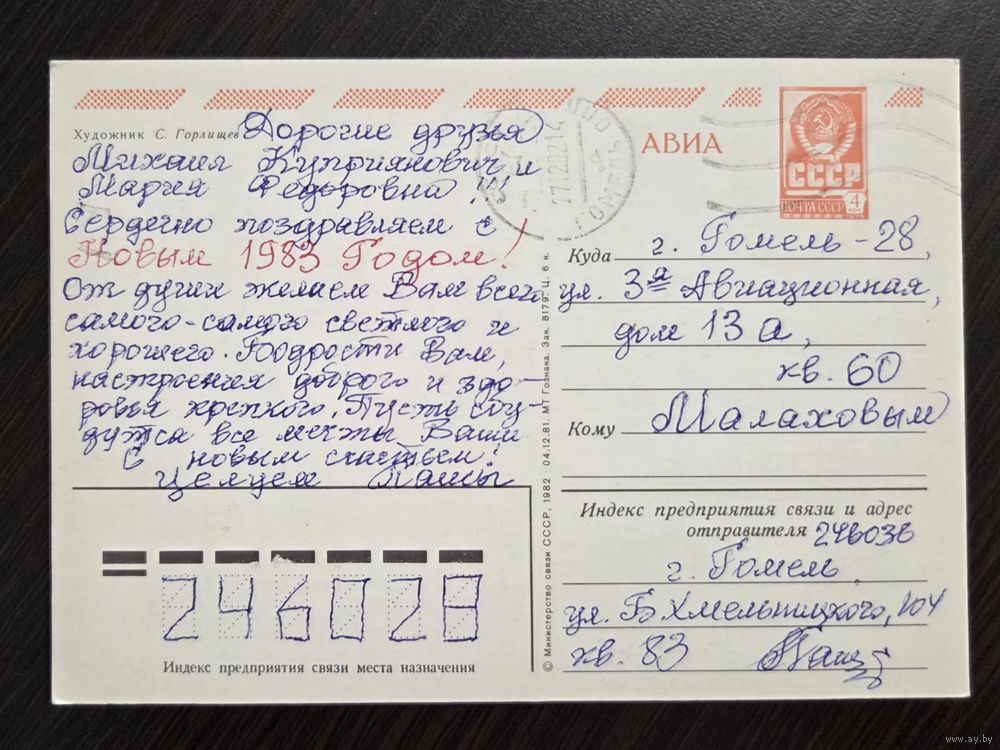 Художник С. Горлищев
Дорогие друзья
Михаил Куприянович и
Мария Федоровна !!!
Сердечно поздравляем с
Новым 1983 Годом!
От души желаем Вам всего
самого-самого светлого и
хорошего. Бодрости Вам,
настроения доброго и здо-
ровья крепкого. Пусть сбу-
дутся все мечты Ваши
С новым счастьем!
Целуем
246028
Индекс предприятия связи места назначения
© Министерство связи СССР, 1982 04.12.81. МТ Гознака. Зак. 8179. Ц. 6 к.
АВИА
СССР
ПОЧТА СССР 4
1976
ГОМЕЛЬ
Куда г. Гомель - 28,
ул. 3я Авиационная,
дом 13 а,
кв. 60
Кому Малаховым
Индекс предприятия связи и адрес
отправителя 246036
г. Гомель,
ул. Б. Хмельницкого, 104
кв. 83
www.ay.by